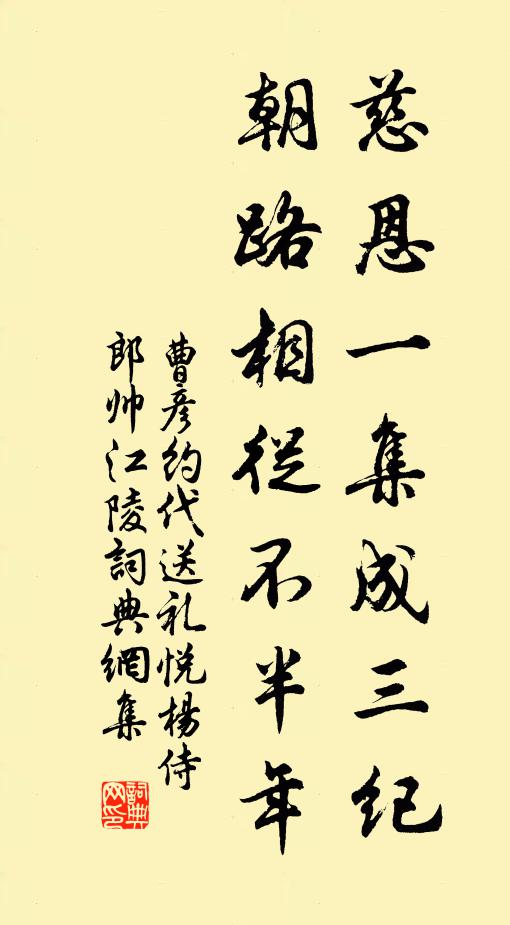 慈恩一集成三纪
朝路相從不半年
曹彦约代送礼悦楊侍
郎帅江陵詞典網集
詞典网印